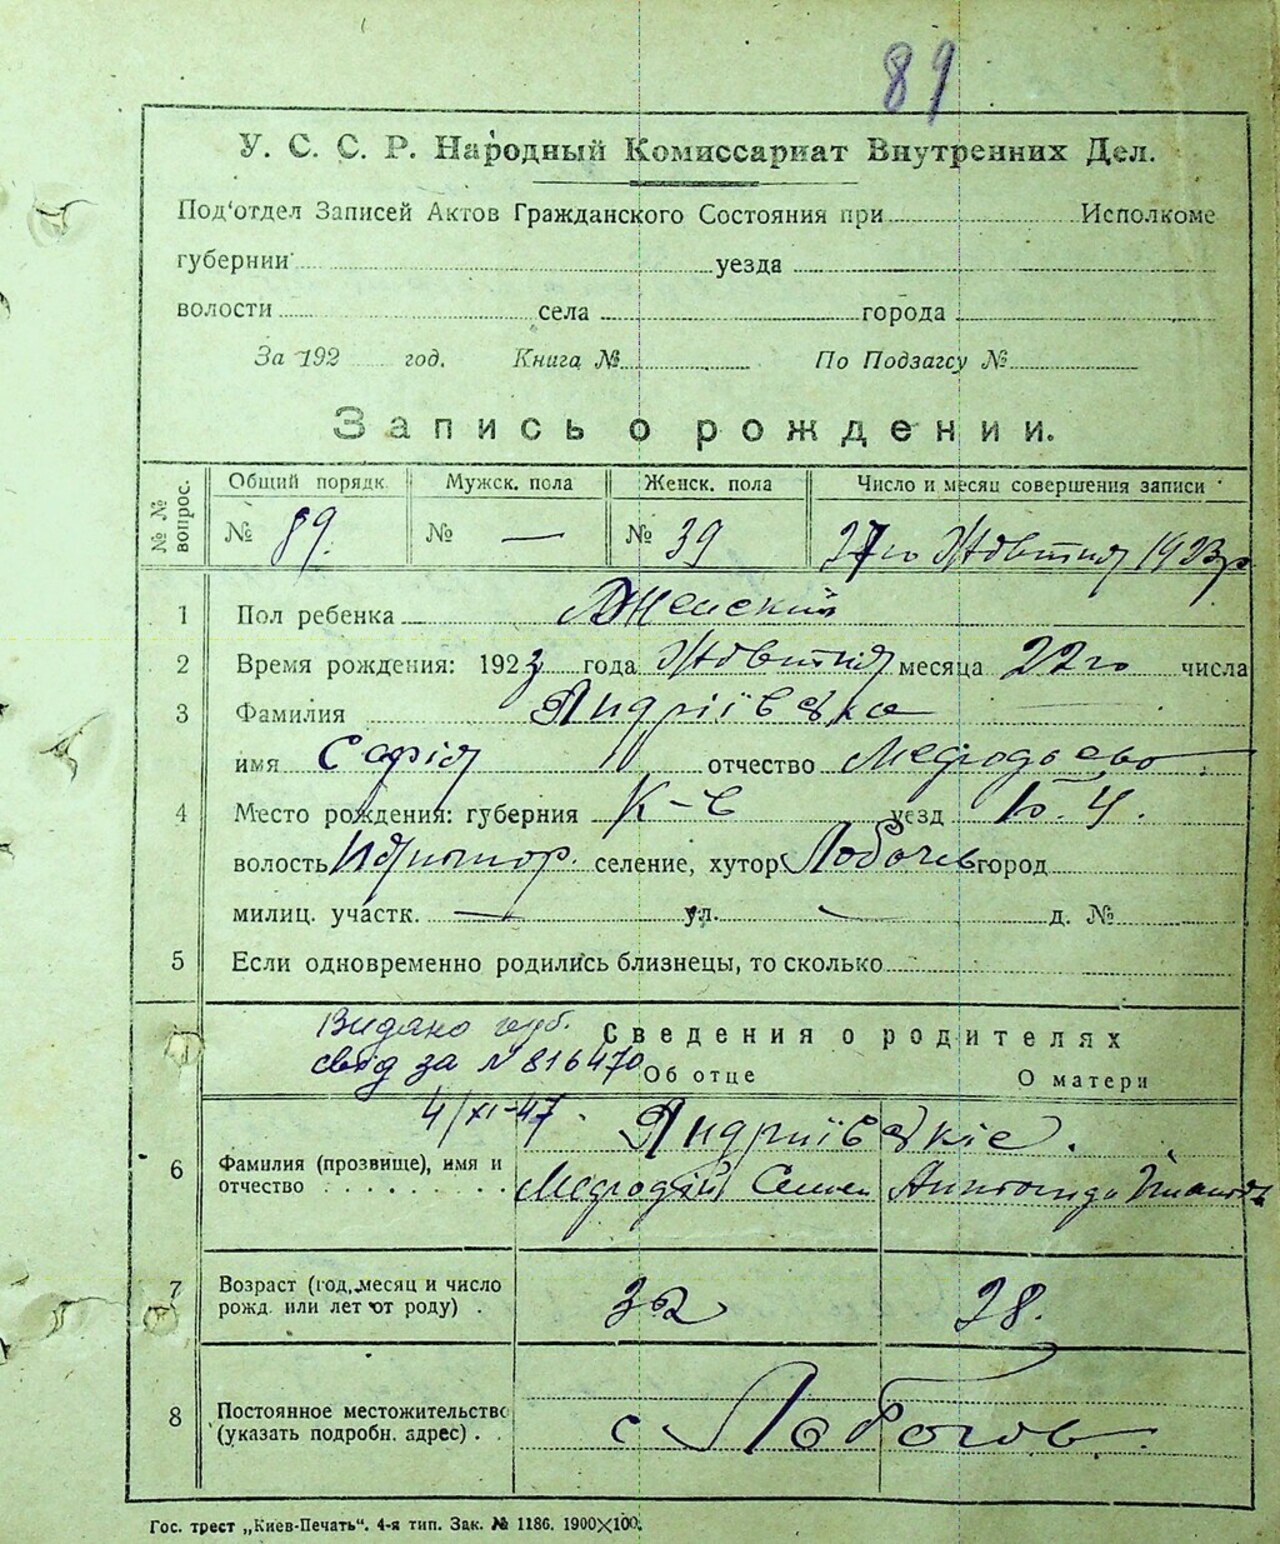 89
У. С. С. Р. Народный Комиссариат Внутренних Дел.
Под'отдел Записей Актов Гражданского Состояния при Исполкоме
губернии уезда
волости села города
За 192 год. Книга № По Подзагсу №
Запись о рождении.
№ № вопрос. Общий порядк. Мужск. пола Женск. пола Число и месяц совершения записи
№ 89. № — № 39 27го Жовтня 1923р
1 Пол ребенка Женский
2 Время рождения: 1923 года Жовтня месяца 22го числа
3 Фамилия Андріївська
имя Софія отчество Мефодьево
4 Место рождения: губерния К-в уезд Б. Ц.
волость селение, хутор Лобачев город
милиц. участк. — ул. — д. №
5 Если одновременно родились близнецы, то сколько
Видано дуб. Сведения о родителях
свід за № 816470 Об отце О матери
4/XI-47
Андриївскіе.
6 Фамилия (прозвище), имя и
отчество . . . . . . . . . Мефодій Семен Антонида Игнатов
7 Возраст (год, месяц и число
рожд. или лет от роду) . 32 28.
8 Постоянное местожительство
(указать подробн. адрес) . . с Лобочов.
Гос. трест „Киев-Печать“. 4-я тип. Зак. № 1186. 1900×100.